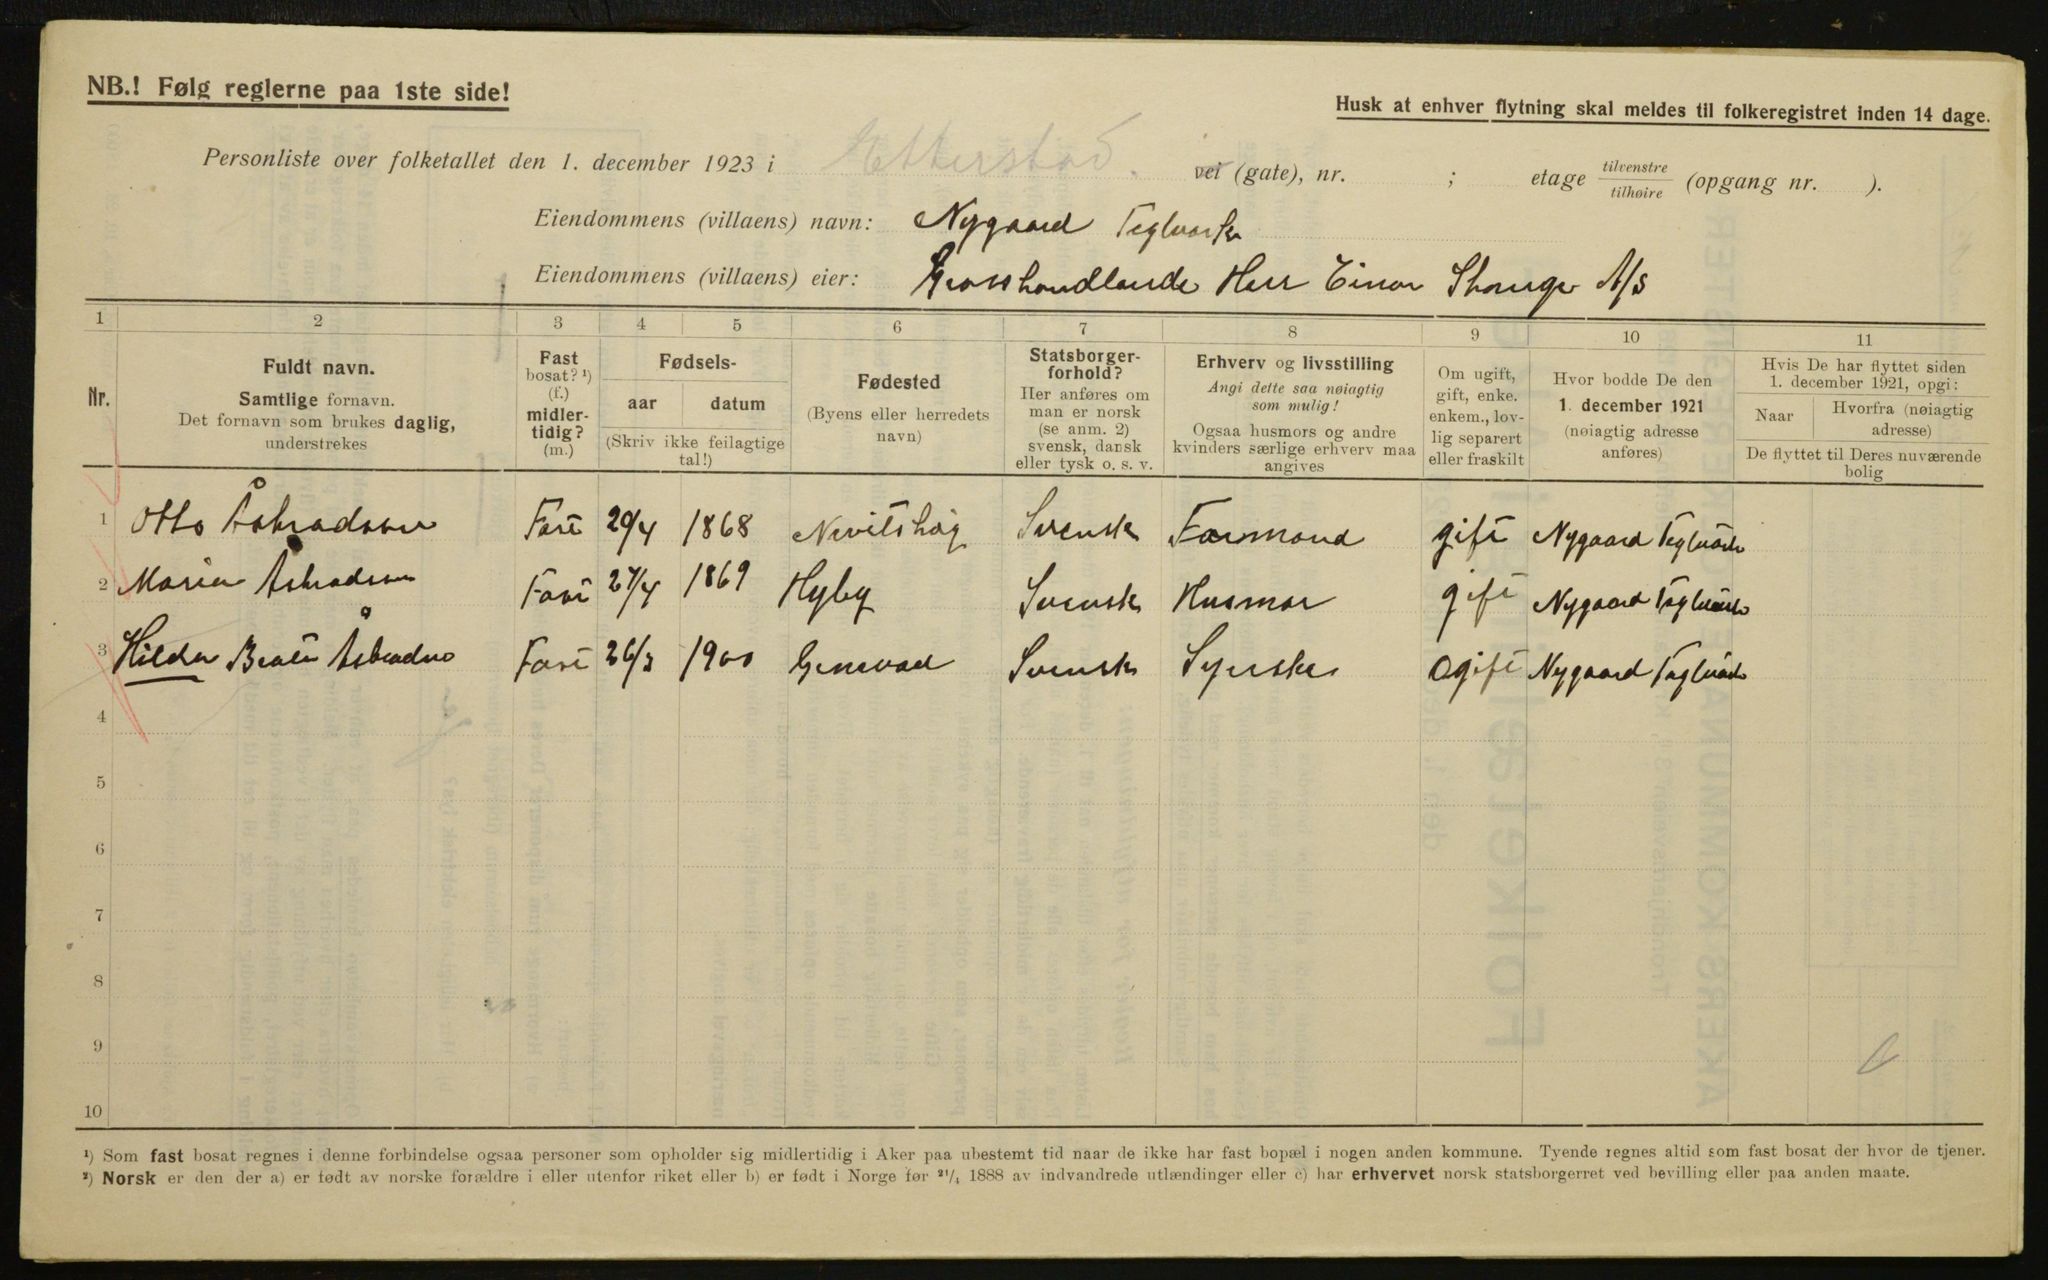 NB.! Følg reglerne paa 1ste side!
Husk at enhver flytning skal meldes til folkeregistret inden 14 dage.
Personliste over folketallet den 1. december 1923 i Etterstad. vei (gate), nr. ; etage tilvenstre tilhøire (opgang nr. ).
Eiendommens (villaens) navn: Nygaard Teglværk
Eiendommens (villaens) eier: Grosshandlande Herr Einar Stange A/S
1 2 3 4 5 6 7 8 9 10 11
Nr.
Fuldt navn.
Samtlige fornavn.
Det fornavn som brukes daglig,
understrekes
Fast
bosat? ¹)
(f.)
midler-
tidig?
(m.)
Fødsels-
aar datum
(Skriv ikke feilagtige
tal!)
Fødested
(Byens eller herredets
navn)
Statsborger-
forhold?
Her anføres om
man er norsk
(se anm. 2)
svensk, dansk
eller tysk o. s. v.
Erhverv og livsstilling
Angi dette saa nøiagtig
som mulig!
Ogsaa husmors og andre
kvinders særlige erhverv maa
angives
Om ugift,
gift, enke.
enkem., lov-
lig separert
eller fraskilt
Hvor bodde De den
1. december 1921
(nøiagtig adresse
anføres)
Hvis De har flyttet siden
1. december 1921, opgi:
Naar
Hvorfra (nøiagtig
adresse)
De flyttet til Deres nuværende
bolig
1 Otto Åstradsson Fast 20/4 1868 Nevitshög Svensk Formand gift Nygaard Teglværk
2 Maria Åstradsson Fast 27/4 1869 Hyby Svensk Husmor gift Nygaard Teglværk
3 Hilda Beata Fast 26/3 1900 Genevad Svensk Syerske Ogift Nygaard Teglværk
4
5
6
7
8
9
10
¹) Som fast bosat regnes i denne forbindelse ogsaa personer som opholder sig midlertidig i Aker paa ubestemt tid naar de ikke har fast bopæl i nogen anden kommune. Tyende regnes altid som fast bosat der hvor de tjener.
²) Norsk er den der a) er født av norske forældre i eller utenfor riket eller b) er født i Norge før ²¹/₄ 1888 av indvandrede utlændinger eller c) har erhvervet norsk statsborgerret ved bevilling eller paa anden maate.